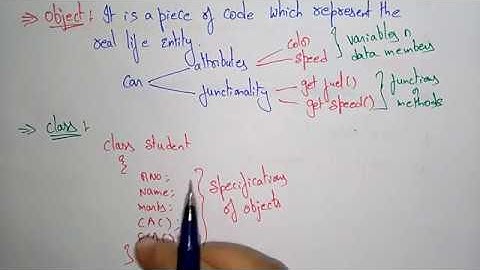 ⇒ Object: It is a piece of code which represent the
real life entity.
attributes color speed } variables or data members
Car
functionality get fuel() get speed() } functions or methods
⇒ class:
class student
{
RNo:
Name:
marks:
CAC)
} specifications of objects
}